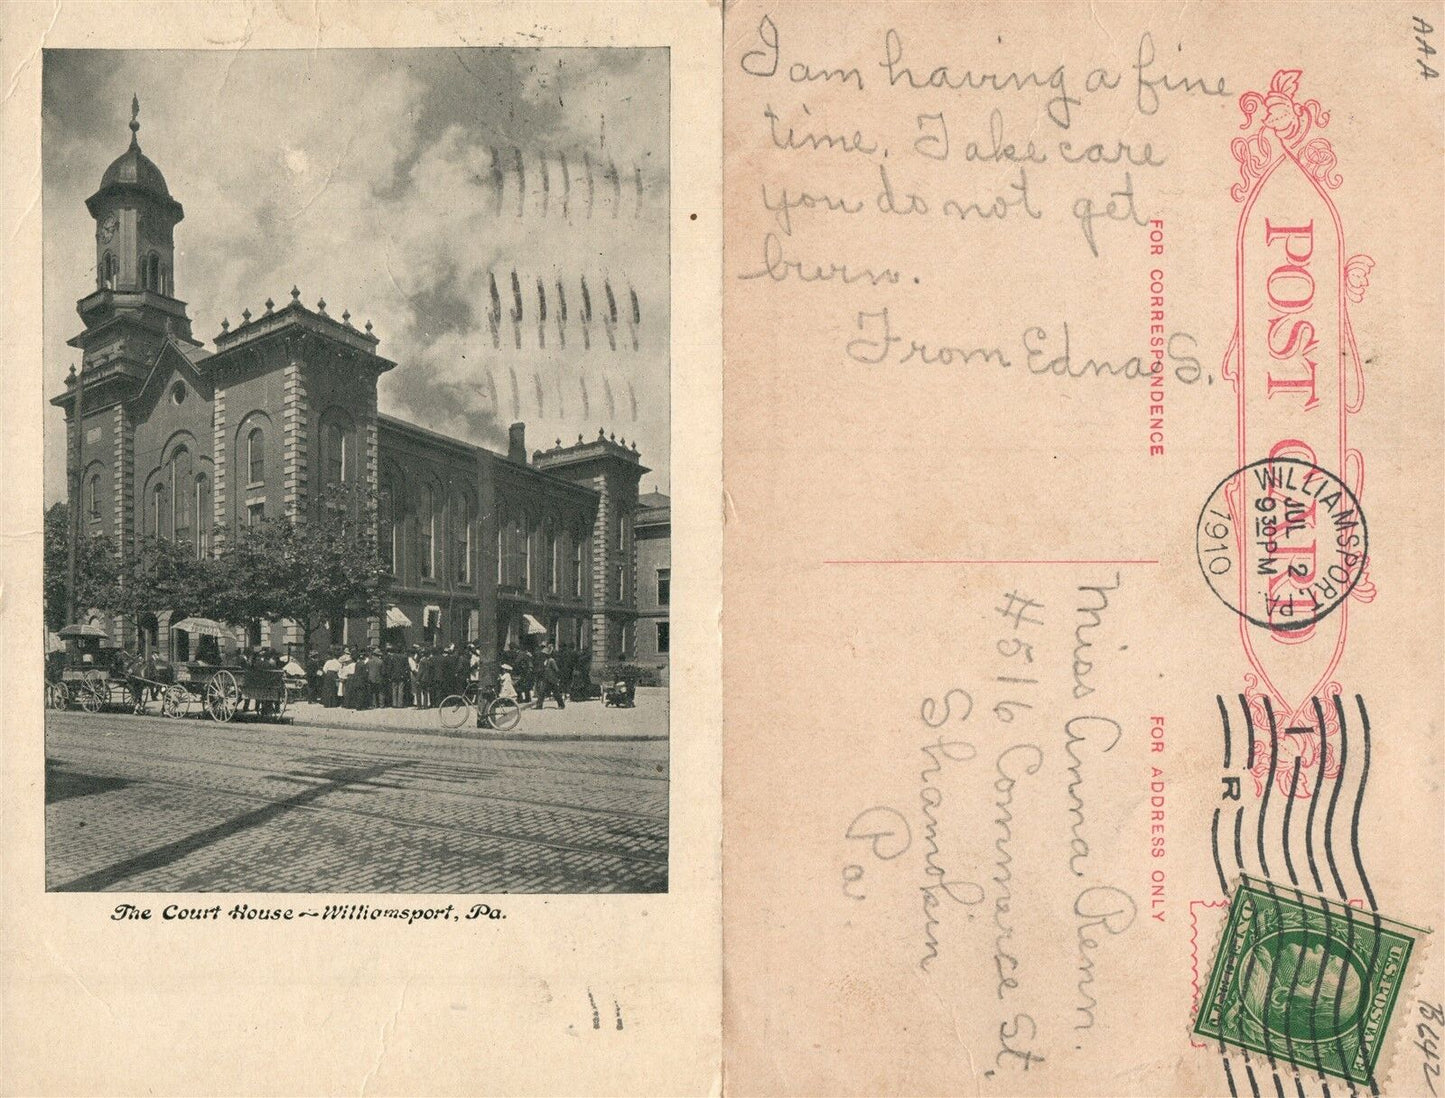 The Court House ~ Williamsport, Pa.
I am having a fine
time. Take care
you do not get
burn.
From Edna S.
FOR CORRESPONDENCE
POST CARD
WILLIAMSPORT, PA.
JUL 2
9 30 PM
1910
FOR ADDRESS ONLY
Miss Anna Renn.
#516 Commerce St.
Shamokin
Pa.
I
R
U.S. POSTAGE
AAA
B642